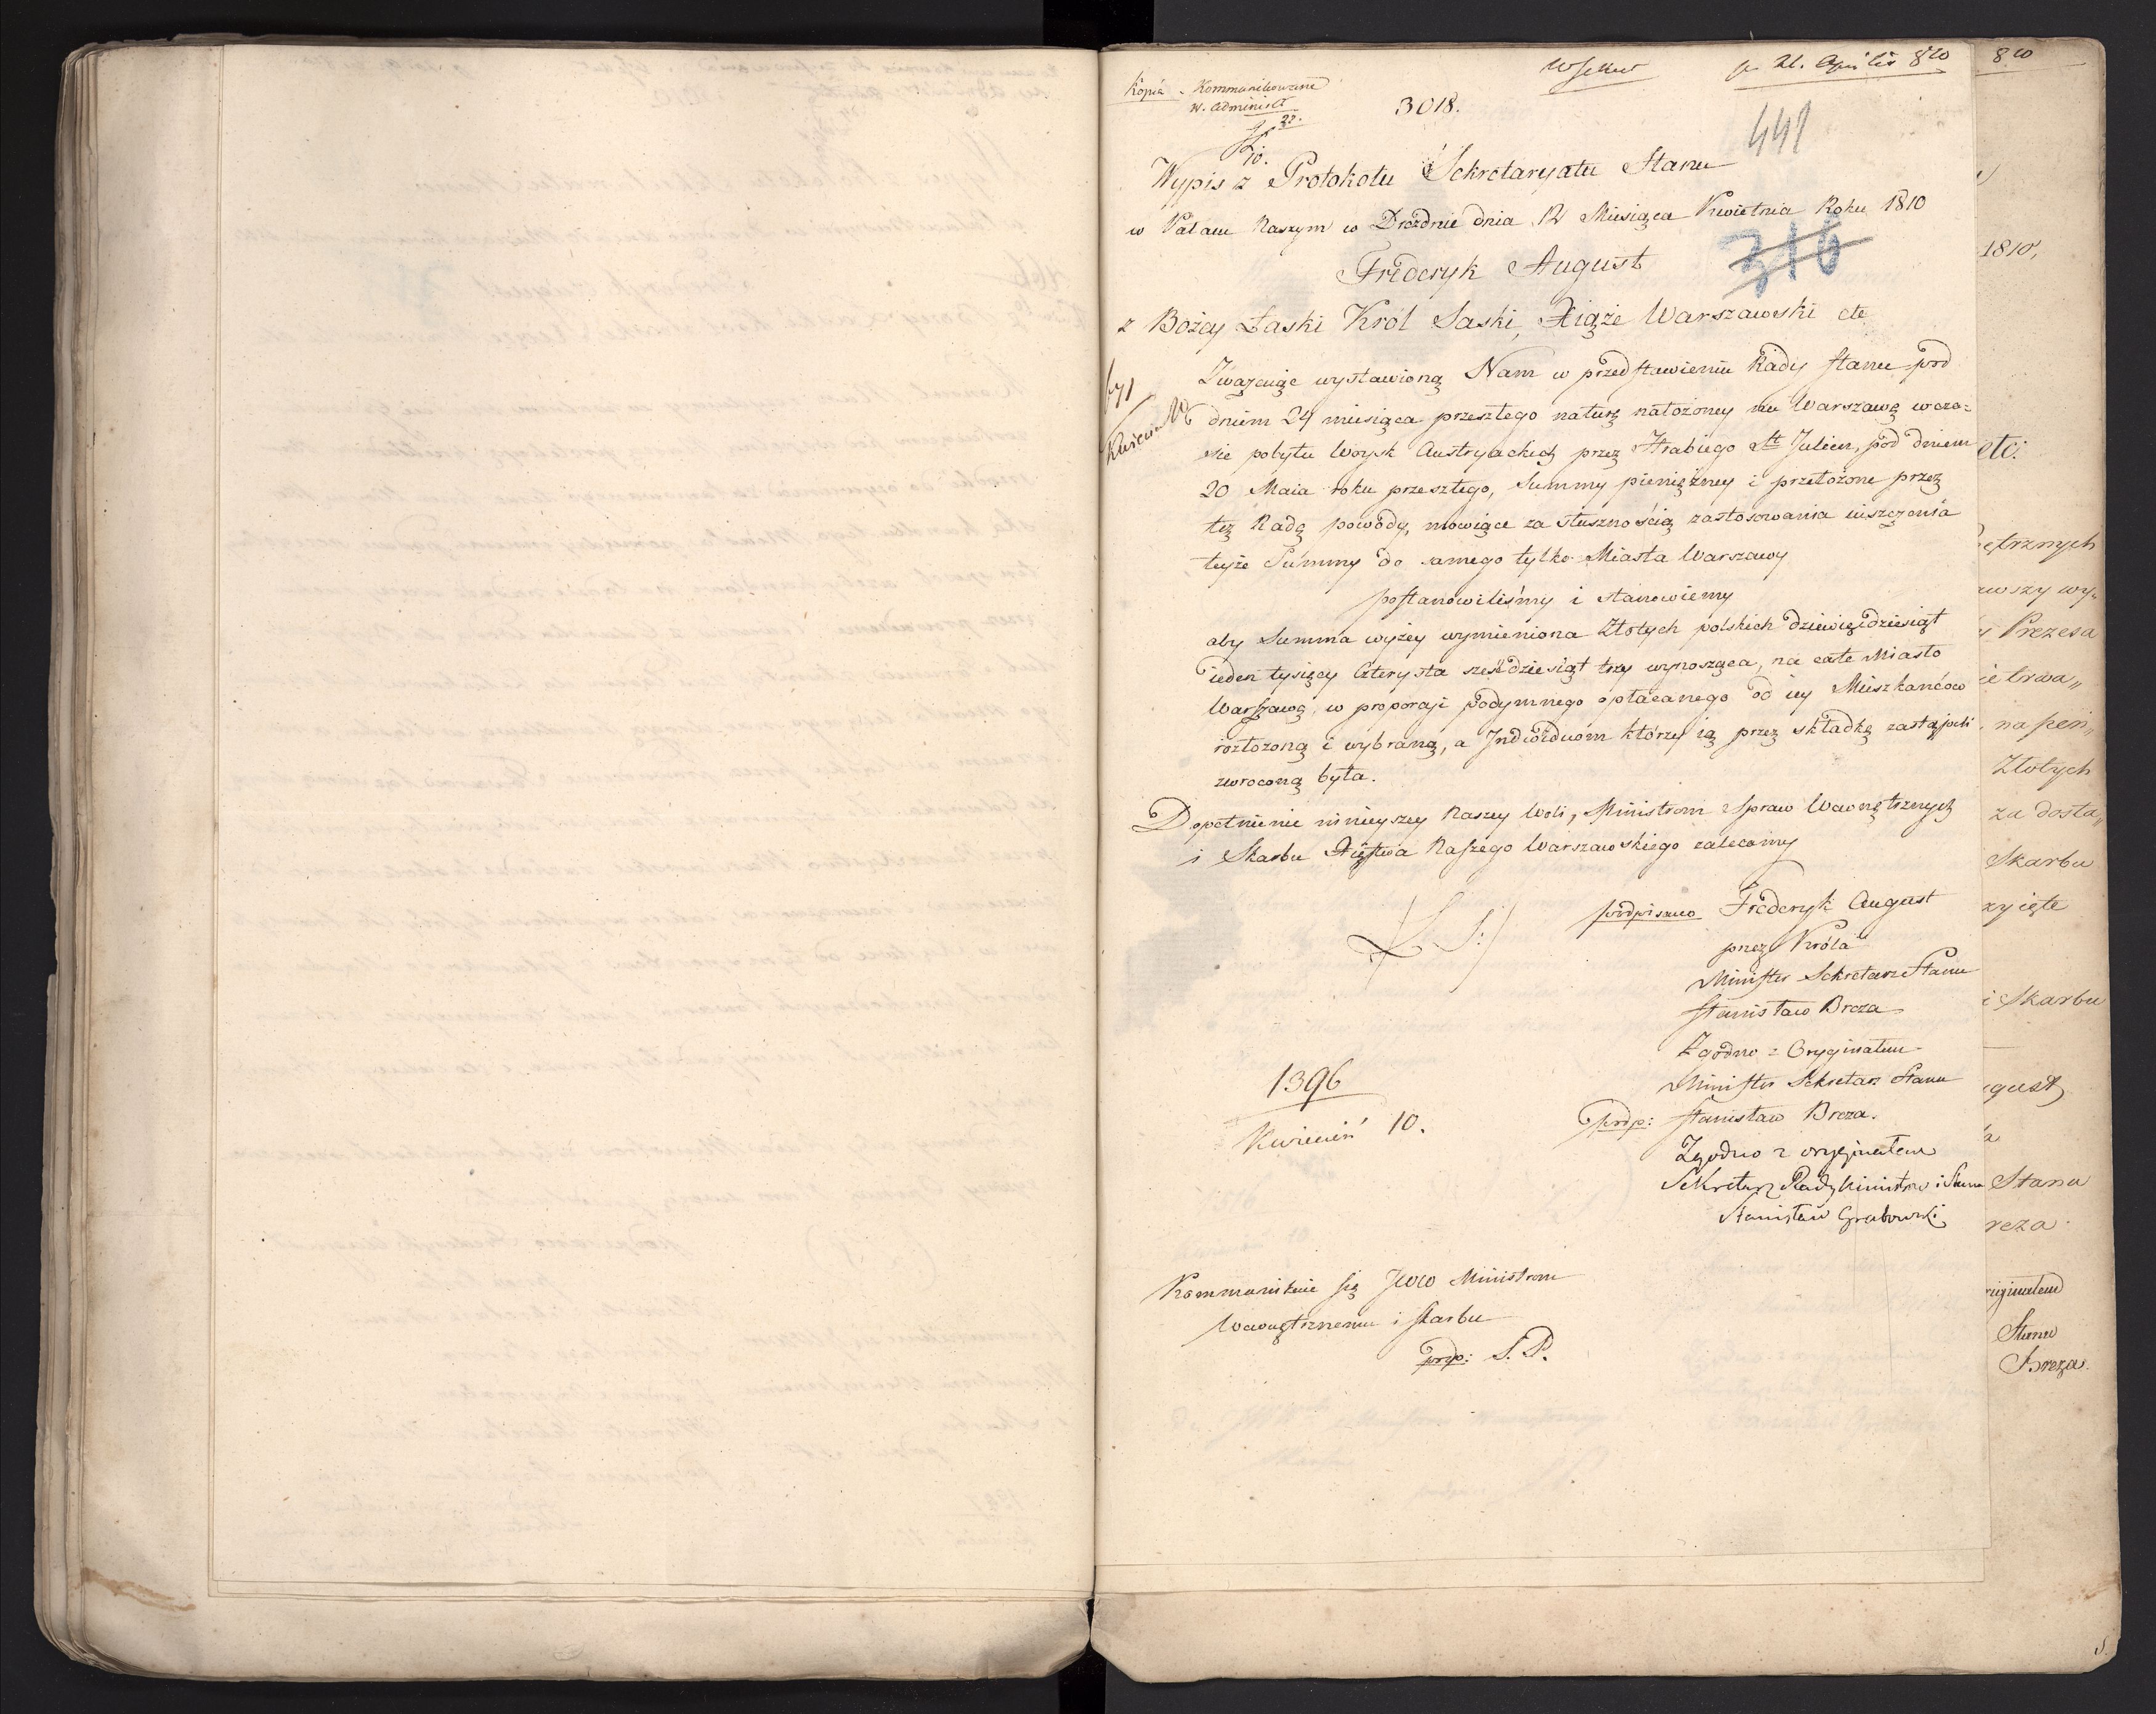 Kopia
Kommunikowane
w. Administ
22.
10.
3018.
Wskut
pr 21. Aprilis 810
441
Wypis z Protokołu Sekretaryatu Stanu
w Pałacu Naszym w Dreźnie dnia 12 Miesiąca Kwietnia Roku 1810
316
Frideryk August
z Bożey Łaski Król Saski, Xiąże Warszawski etc
Zważaiąc wystawioną Nam w przedstawieniu Rady Stanu pod
dniem 24 miesiąca przeszłego naturę nałożoney na Warszawę w cza=
sie pobytu Woysk Austryackich przez Hrabiego St Julien, pod dniem
20 Maia roku przeszłego, Summy pieniężney i przełożone przez
też Radę powody, mowiące za słusznością zastosowania uiszczenia
teyże Summy do samego tylko Miasta Warszawy
postanowiliśmy i stanowiemy
aby Summa wyżey wymieniona Złotych polskich dziewięćdziesiąt
ieden tysięcy Czterysta sześćdziesiąt trzy wynosząca, na całe Miasto
Warszawę, w proporcyi podymnego opłacanego od iey Mieszkańców
rozłożoną i wybraną, a Indiwiduom którzy ią przez składkę zastąpili
zwroconą była.
Dopełnienie ninieyszey Naszey Woli, Ministrom Spraw Wewnętrznych
i Skarbu Xięstwa Naszego Warszawskiego zalecamy
(L S:)
podpisano Frideryk August
przez Króla
Minister Sekretarz Stanu
Stanisław Breza
Zgodno z Oryginałem
Minister Sekretarz Stanu
podp: Stanisław Breza.
Zgodno z oryginałem
Sekretarz Rady Ministrów i Stanu
Stanisław Grabowski
1396
Kwiecień 10.
Kommunikuie się JWW Ministrom
Wewnętrznemu i Skarbu
podp: S. P.
810
1810,
etc:
ętrznych
wszy wy„
Prezesa
ie trwa„
na pen„
Złotych
za dosta„
Skarbu
zyięte
i Skarbu
gust
Stanu
reza
riginałem
Stanu
Breza.